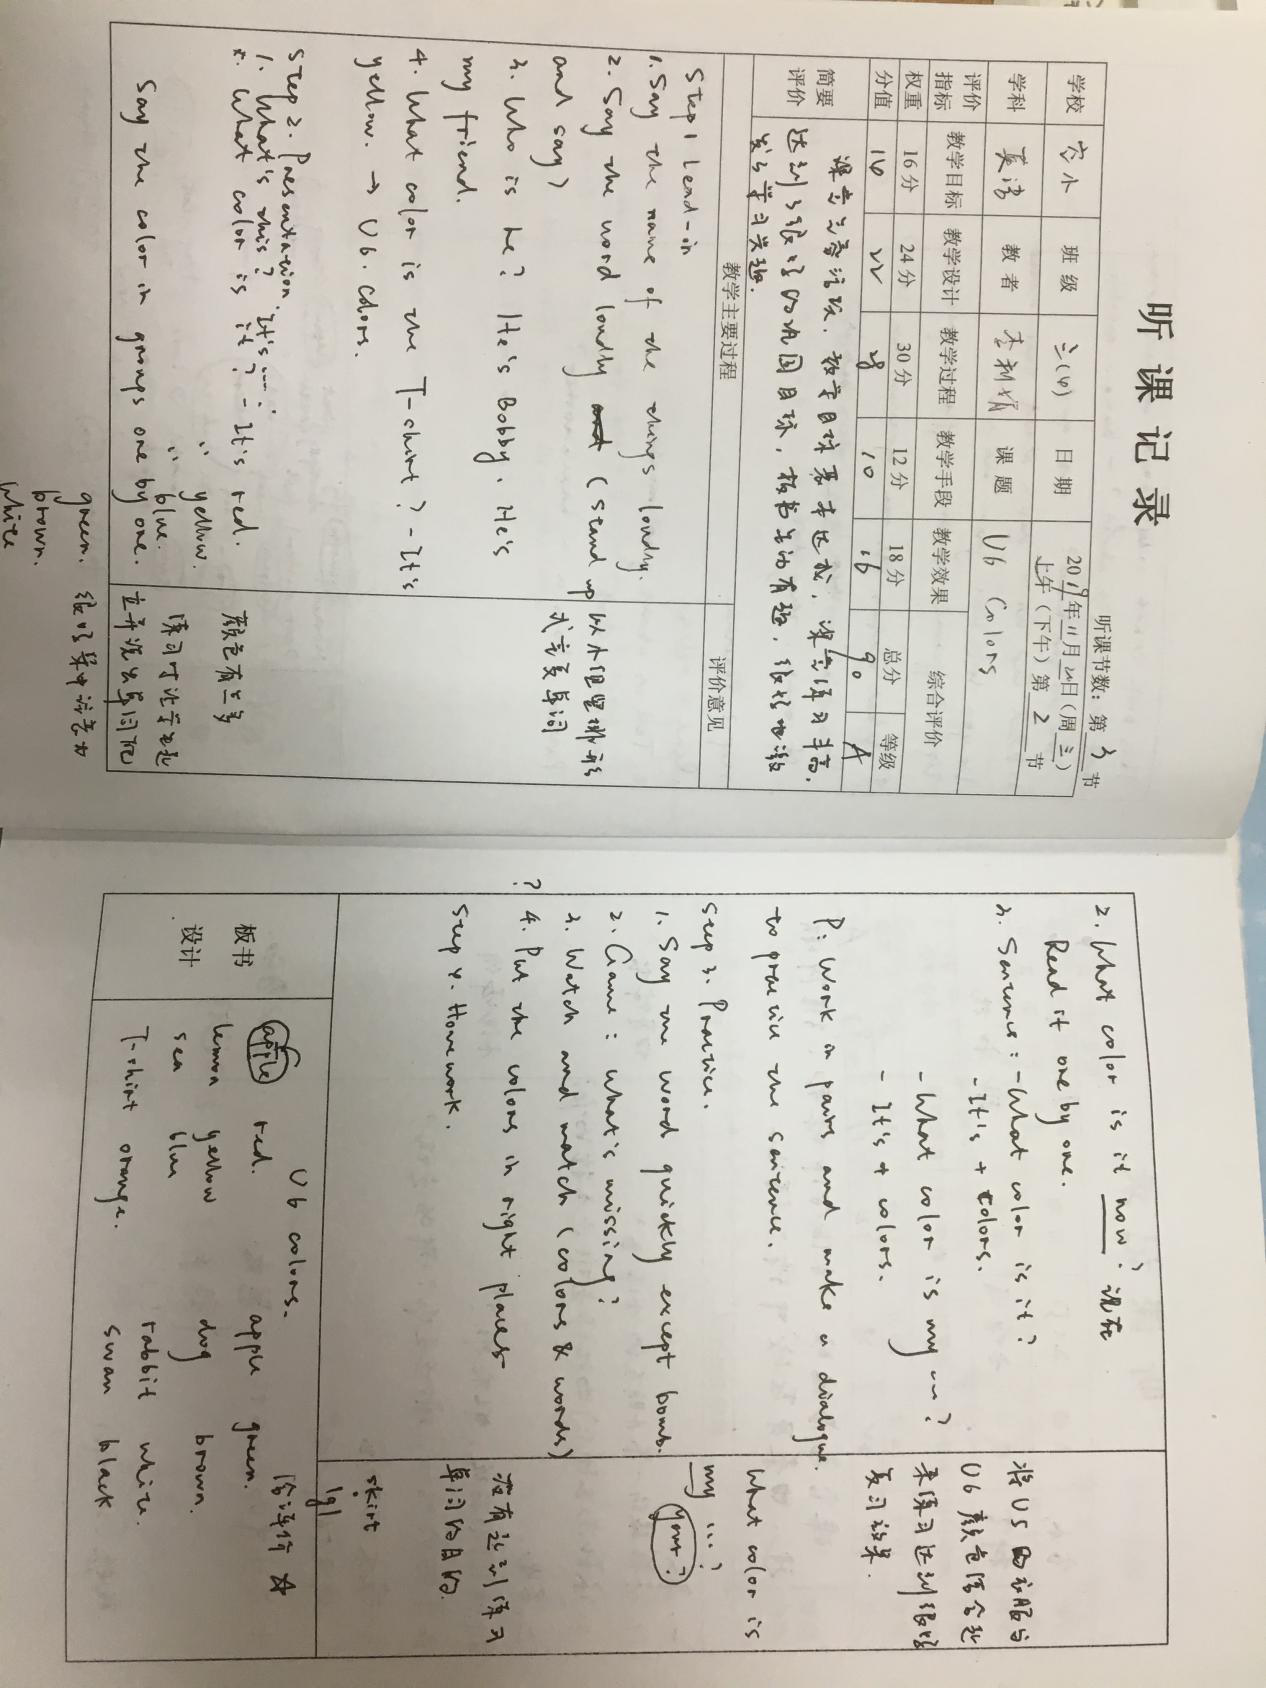 听课记录
听课节数：第 3 节
学校 实小 班级 三(4) 日期 2019年11月20日（周三）
上午（下午）第 2 节
学科 英语 教者 课题 U6 Colors
评价指标 教学目标 教学设计 教学过程 教学手段 教学效果 综合评价
权重 16分 24分 30分 12分 18分 总分 等级
分值 14 22 28 10 16 90 A
简要评价
课堂完整流畅，教学目标基本达成，课堂练习丰富，
达到了很好的巩固目标，板书生动有趣，很好地激
发了学习兴趣.
教学主要过程 评价意见
Step 1 Lead-in
1. Say the name of the things loudly.
2. Say the word loudly (stand up
and say)
3. Who is he? He's Bobby. He's
my friend.
4. What color is the T-shirt? - It's
yellow. → U6. Colors.
Step 2. Presentation
1. What's this? It's ...
*. What color is it? - It's red.
〃 yellow.
〃 blue.
Say the color in groups one by one.
green.
brown.
white
以小组留排形
式言复单词
颜色有二号
练习时让学生起
立并说出单词 很好集中注意力
2. What color is it now? 现在
Read it one by one.
3. Sentence: - What color is it?
- It's + colors.
- What color is my ...?
- It's + colors.
P: Work in pairs and make a dialogue
to practice the sentence.
Step 3. Practice.
1. Say the word quickly except bomb.
2. Game: What's missing?
3. Watch and match (colors & words)
? 4. Put the colors in right places
Step 4. Homework.
将U5的衣服与
U6颜色结合起
来练习达到很好
复习效果.
What color is
my ...?
your?
没有达到练习
单词的目的.
skirt
板书设计
U6 colors.
apple red. apple green.
lemon yellow dog brown.
sea blue rabbit white.
T-shirt orange. swan black